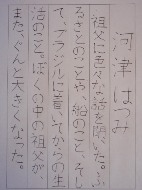 河津 はつみ
祖父に色々な話を聞いた。ふ
るさとのことや船のこと、そし
て、ブラジルに着いてからの生
活のこと。ぼくの中の祖父が
また、ぐんと大きくなった。